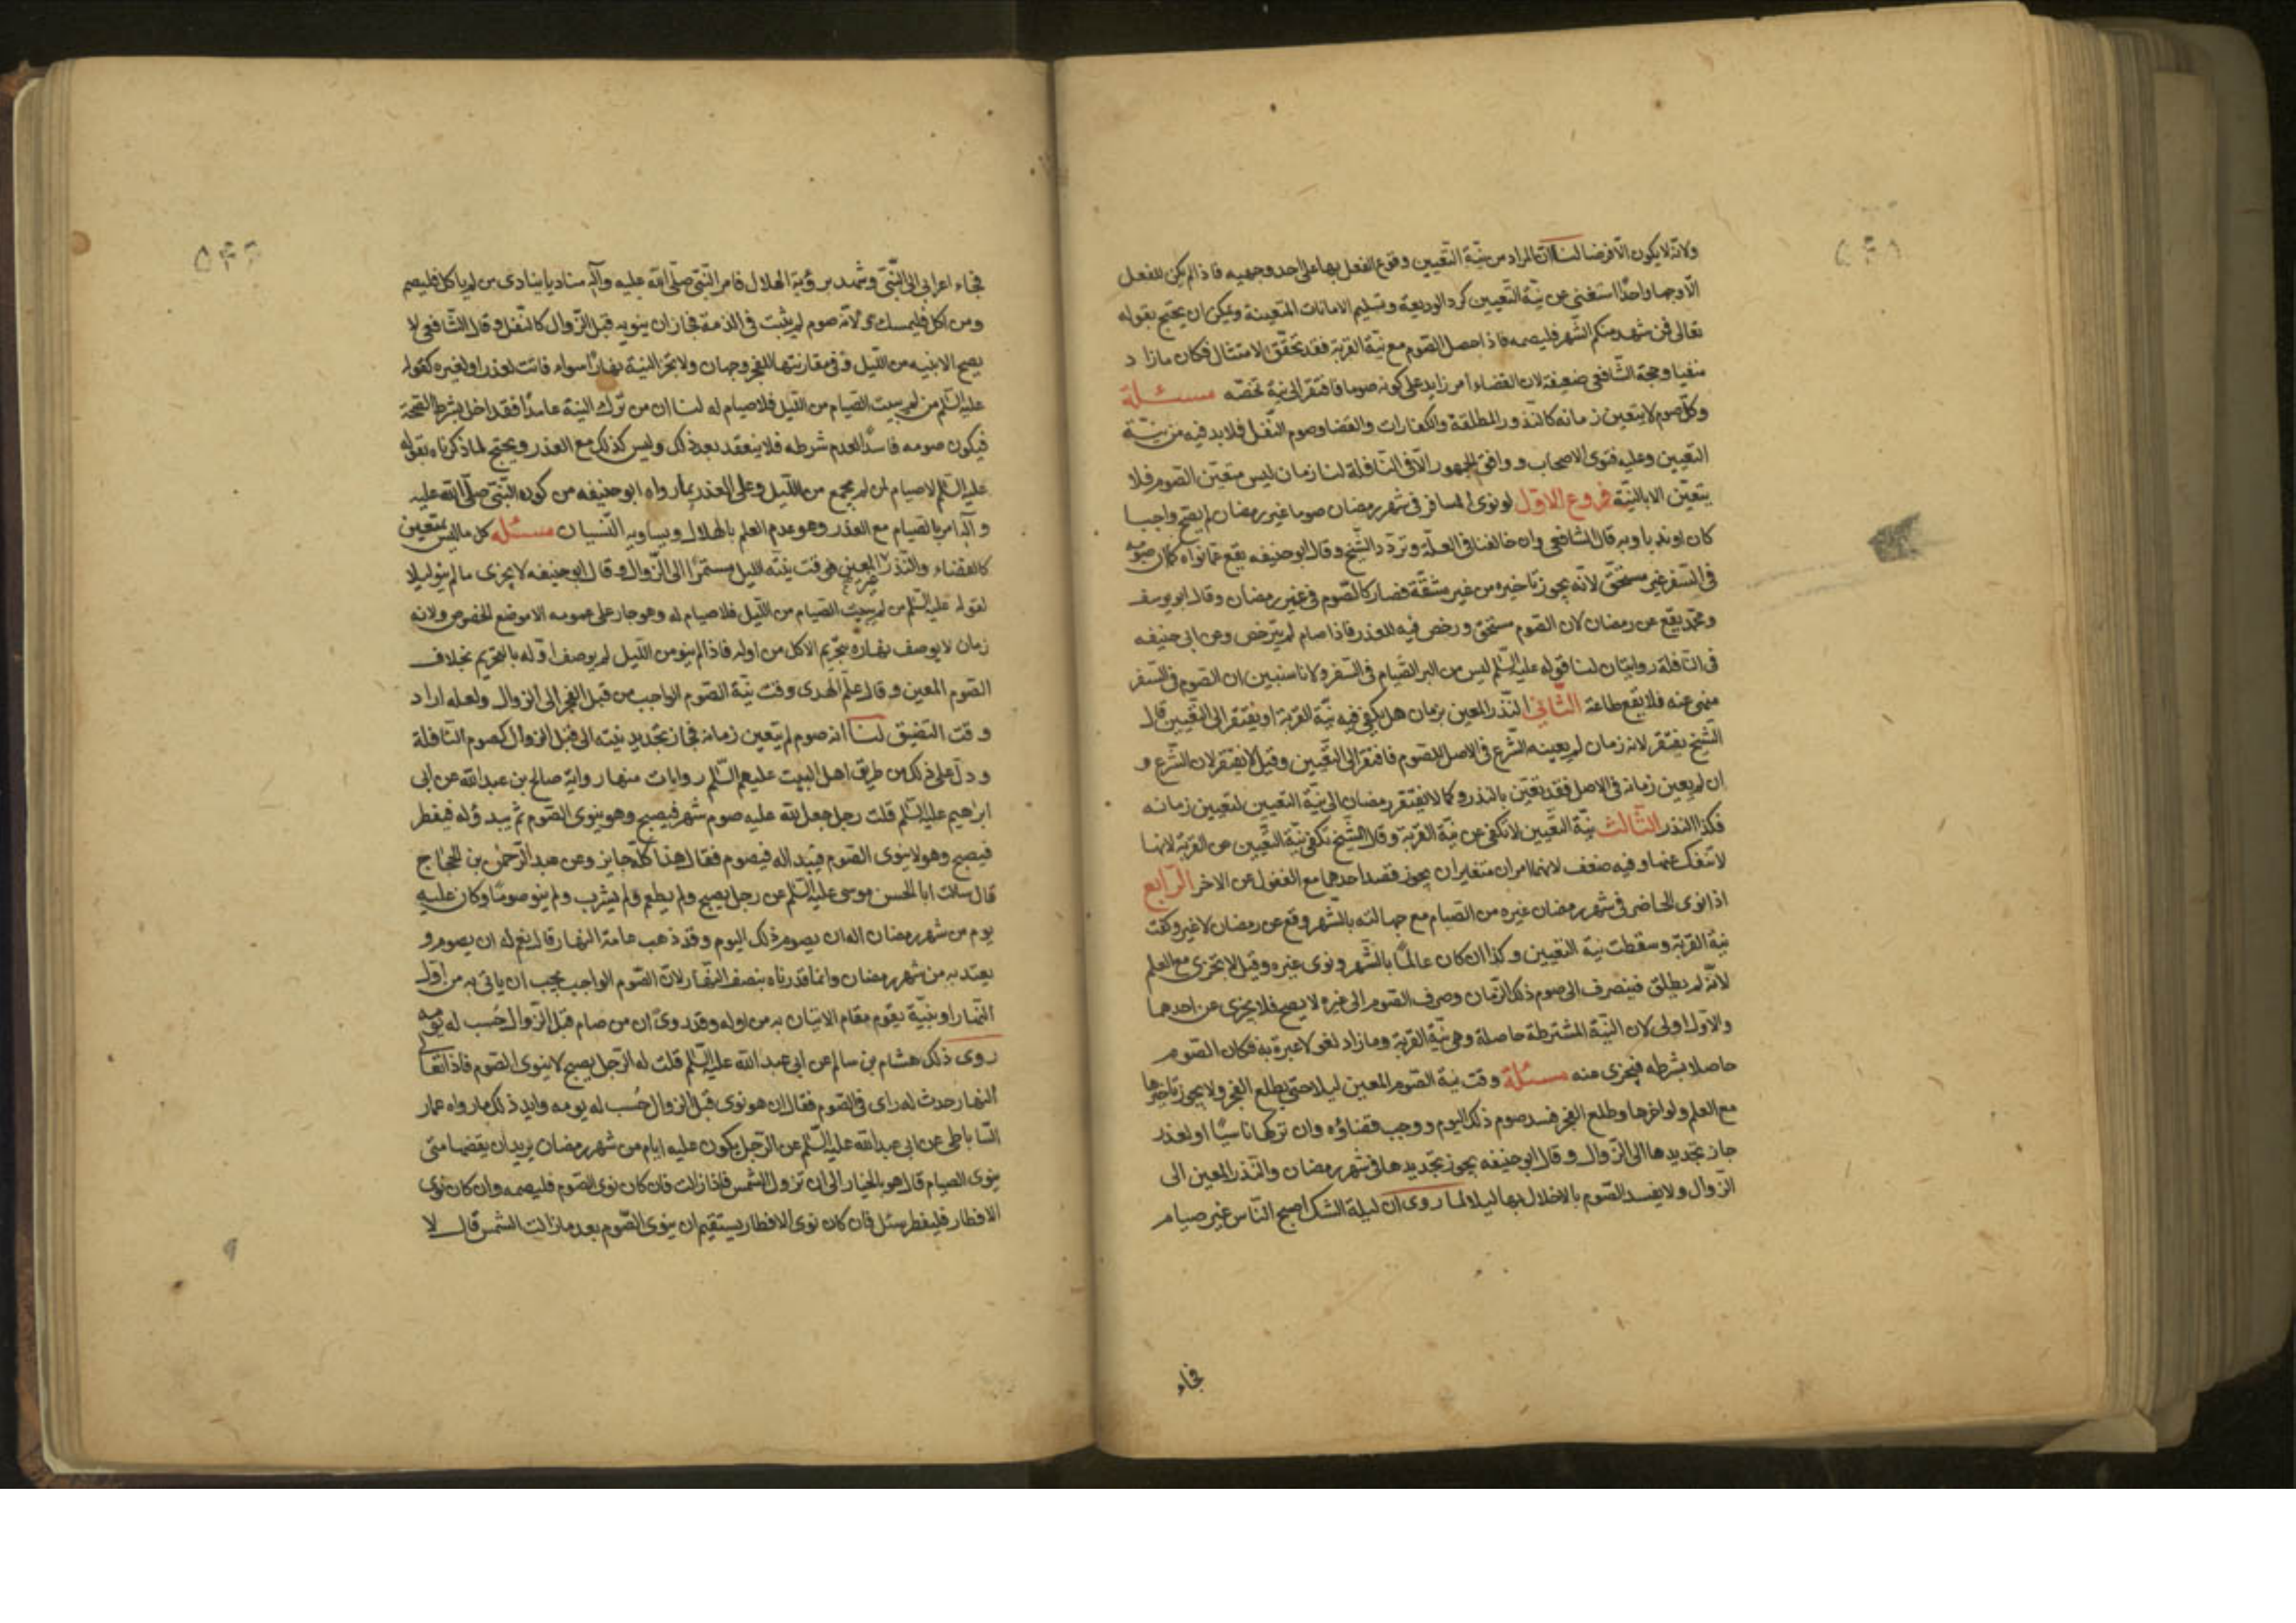 ولانه لا يكون الا فرضا لنا ان المراد من نية التعيين وقوع الفعل بها على احد وجهيه فاذا لم يكن للفعل
الا وجها واحدا استغنى عن نية التعيين كرد الوديعة وتسليم الامانات المتعينة ويمكن ان يحتج بقوله
تعالى فمن شهد منكم الشهر فليصمه فاذا حصل الصوم مع نية القربة فقد تحقق الامتثال فكان مازاد
منفيا وحجة الشافعي ضعيفة لان القضاء امر زايد على كونه صوما فافتقر الى نية تخصه مسئلة
وكل صوم لا يتعين زمانه كالنذور المطلقة والكفارات والقضا وصوم النفل فلا بد فيه من نية
التعيين وعليه فتوى الاصحاب ووافق الجمهور الا في النافلة لنا زمان ليس متعين الصوم فلا
يتعين الا بالنية فروع الاول لو نوى المسافر في شهر رمضان صوما غير رمضان لم يصح واجبا
كان او ندبا وبه قال الشافعي وان خالفنا في العلة وتردد الشيخ وقال ابو حنيفه يقع عما نواه كان صومه
في السفر غير مستحق لانه يجوز تاخيره من غير مشقة فصار كالصوم في غير رمضان وقال ابو يوسف
ومحمد يقع عن رمضان لان الصوم مستحق ورخص فيه للعذر فاذا صام لم يترخص وعن ابي حنيفه
في النافلة روايتان لنا قوله عليه السلم ليس من البر الصيام في السفر ولانا سنبين ان الصوم في السفر
منهى عنه فلا يقع طاعة الثاني النذر المعين بزمان هل يكفي فيه نية القربة او يفتقر الى التعيين قال
الشيخ يفتقر لانه زمان لم يعينه الشرع في الاصل للصوم فافتقر الى التعيين وقيل لا يفتقر لان الشرع و
ان لم يعين زمانه في الاصل فقد تعين بالنذر وكما لا يفتقر رمضان الى نية التعيين لتعيين زمانه
فكذا النذر الثالث نية التعيين لا تكفي عن نية القربة وقال الشيخ تكفي نية التعيين عن القربة لانها
لا تنفك عنها وفيه ضعف لانهما امران متغايران يجوز قصد احدهما مع الغفول عن الاخر الرابع
اذا نوى الحاضر في شهر رمضان غيره من الصيام مع جهالته بالشهر وقع عن رمضان لا غير وكفت
نية القربة وسقطت نية التعيين وكذا ان كان عالما بالشهر ونوى غيره وقيل لا تجزى مع العلم
لانه لم يطلق فينصرف الى صوم ذلك الزمان وصرف الصوم الى غيره لا يصح فلا يجزى عن احدهما
والاول اولى لان النية المشترطة حاصلة وهي نية القربة ومازاد لغو لا عبرة به فكان الصوم
حاصلا بشرطه فيجزى عنه مسئلة وقت نية الصوم المعين ليلا حتى يطلع الفجر ولا يجوز تاخيرها
مع العلم ولو اخرها وطلع الفجر فسد صوم ذلك اليوم ووجب قضاؤه وان تركها ناسيا او لعذر
جاز تجديدها الى الزوال وقال ابو حنيفه يجوز تجديدها في شهر رمضان والنذر المعين الى
الزوال ولا يفسد الصوم بالاخلال بها ليلا لما روى ان ليلة الشك اصبح الناس غير صيام
فجاء
فجاء اعرابي الى النبي وشهد برؤية الهلال فامر النبي صلى الله عليه وآله مناديا ينادى من لم ياكل فليصم
ومن اكل فليمسك ولانه صوم لم يثبت في الذمة فجاز ان ينويه قبل الزوال كالنفل وقال الشافعي لا
يصح الا بنيه من الليل وفي مقارنتها للفجر وجهان ولا تجزالنية نهارا سواء فاتت لعذر او لغيره كقوله
عليه السلم من لم يبيت الصيام من الليل فلا صيام له لنا ان من ترك النية عامدا فقد اخل بشرط الصحة
فيكون صومه فاسدا لعدم شرطه فلا ينعقد بعد ذلك وليس كذلك مع العذر ويحتج لما ذكرناه بقوله
عليه السلم لا صيام لمن لم يجمع من الليل وعلى العذر بما رواه ابو حنيفه من كونه النبي صلى الله عليه
وآله امر بالصيام مع العذر وهو عدم العلم بالهلال ويساويه النسيان مسئله كل ما ليس بمتعين
كالقضاء والنذر المعين غير فوقت نيته الليل مستمرا الى الزوال وقال ابو حنيفه لا يجزى ما لم ينو ليلا
لقوله عليه السلم من لم يبيت الصيام من الليل فلا صيام له وهو جار على عمومه الا موضع الخصوص ولانه
زمان لا يوصف نهاره بتحريم الاكل من اوله فاذا لم ينو من الليل لم يوصف اوله بالتحريم بخلاف
الصوم المعين وقال علم الهدى وقت نية الصوم الواجب من قبل الفجر الى الزوال ولعله اراد
وقت التضيق لنا انه صوم لم يتعين زمانه فجاز تجديد نيته الى قبل الزوال كصوم النافلة
ودل على ذلك من طريق اهل البيت عليهم السلم روايات منها رواية صالح بن عبد الله عن ابي
ابراهيم عليه السلم قلت رجل جعل لله عليه صوم شهر فيصبح وهو ينوى الصوم ثم يبدوله فيفطر
فيصبح وهو لا ينوى الصوم فيبداله فيصوم فقال هذا كله جايز وعن عبد الرحمن بن الحجاج
قال سالت ابا الحسن موسى عليه السلم عن رجل يصبح ولم يطعم ولم يشرب ولم ينو صوما وكان عليه
يوم من شهر رمضان اله ان يصوم ذلك اليوم وقد ذهب عامة النهار قال نعم له ان يصوم و
يعتد به من شهر رمضان وانما قدرناه بنصف النهار لان الصوم الواجب يجب ان ياتى به من اول
النهار او بنية يقوم مقام الاتيان به من اوله وقد روى ان من صام قبل الزوال حسب له يومه
روى ذلك هشام بن سالم عن ابى عبد الله عليه السلم قلت له الرجل يصبح لا ينوى الصوم فاذا تعالى
النهار حدث له راى في الصوم فقال ان هو نوى قبل الزوال حسب له يومه وايد ذلك ما رواه عمار
الساباطى عن ابى عبد الله عليه السلم عن الرجل يكون عليه ايام من شهر رمضان يريد ان يقضيها متى
ينوى الصيام قال هو بالخيار الى ان تزول الشمس فاذا زالت فان كان نوى الصوم فليصمه وان كان نوى
الافطار فليفطر سئل فان كان نوى الافطار يستقيم ان ينوى الصوم بعد ما زالت الشمس قال لا